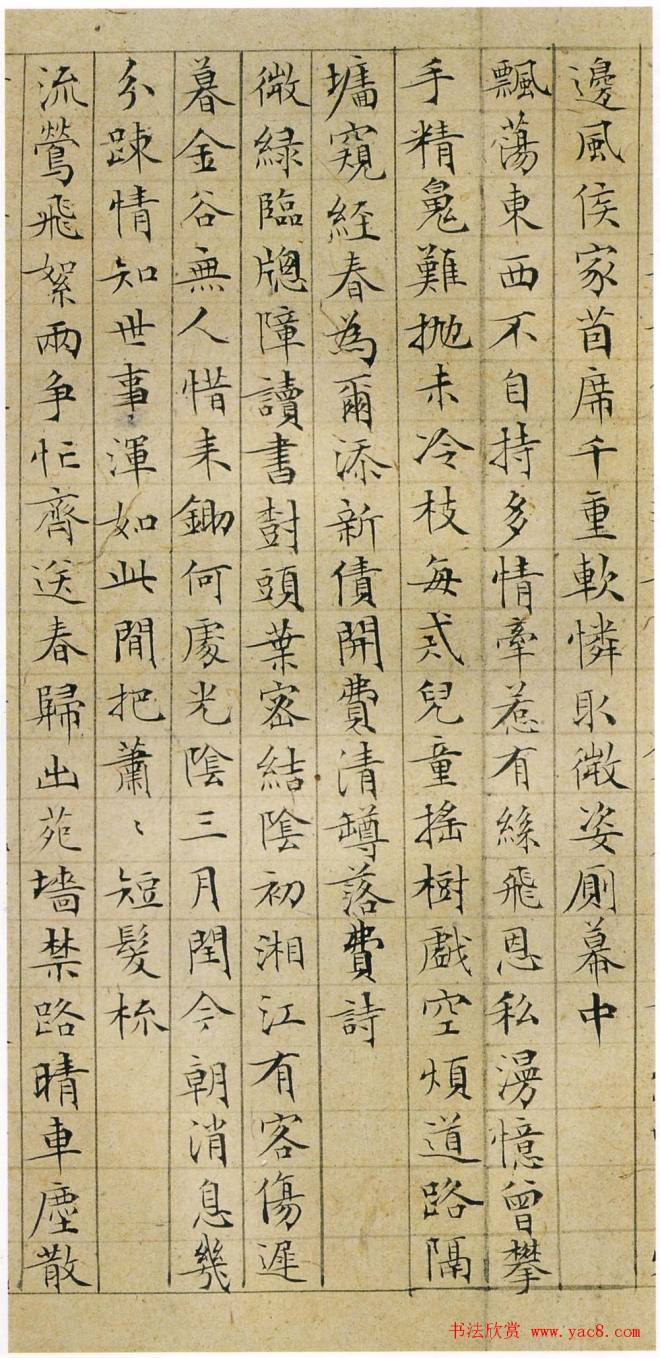 邊風侯家茵席千重軟憐取微姿厠幕中
飄蕩東西不自持多情牽惹有絲飛恩私漫憶曾攀
手精䰟難抛未冷枝每忒兒童搖樹戲空煩道路隔
墻窺經春為爾添新債開費清罇落費詩
微緑臨牕障讀書封頭葉密結陰初湘江有客傷遲
暮金谷無人惜耒鋤何處光陰三月閏今朝消息幾
分踈情知世事渾如此閒把蕭〻短髮梳
流鶯飛絮兩爭忙齊送春歸出苑墻禁路晴車塵散
书法欣赏 www.yac8.com